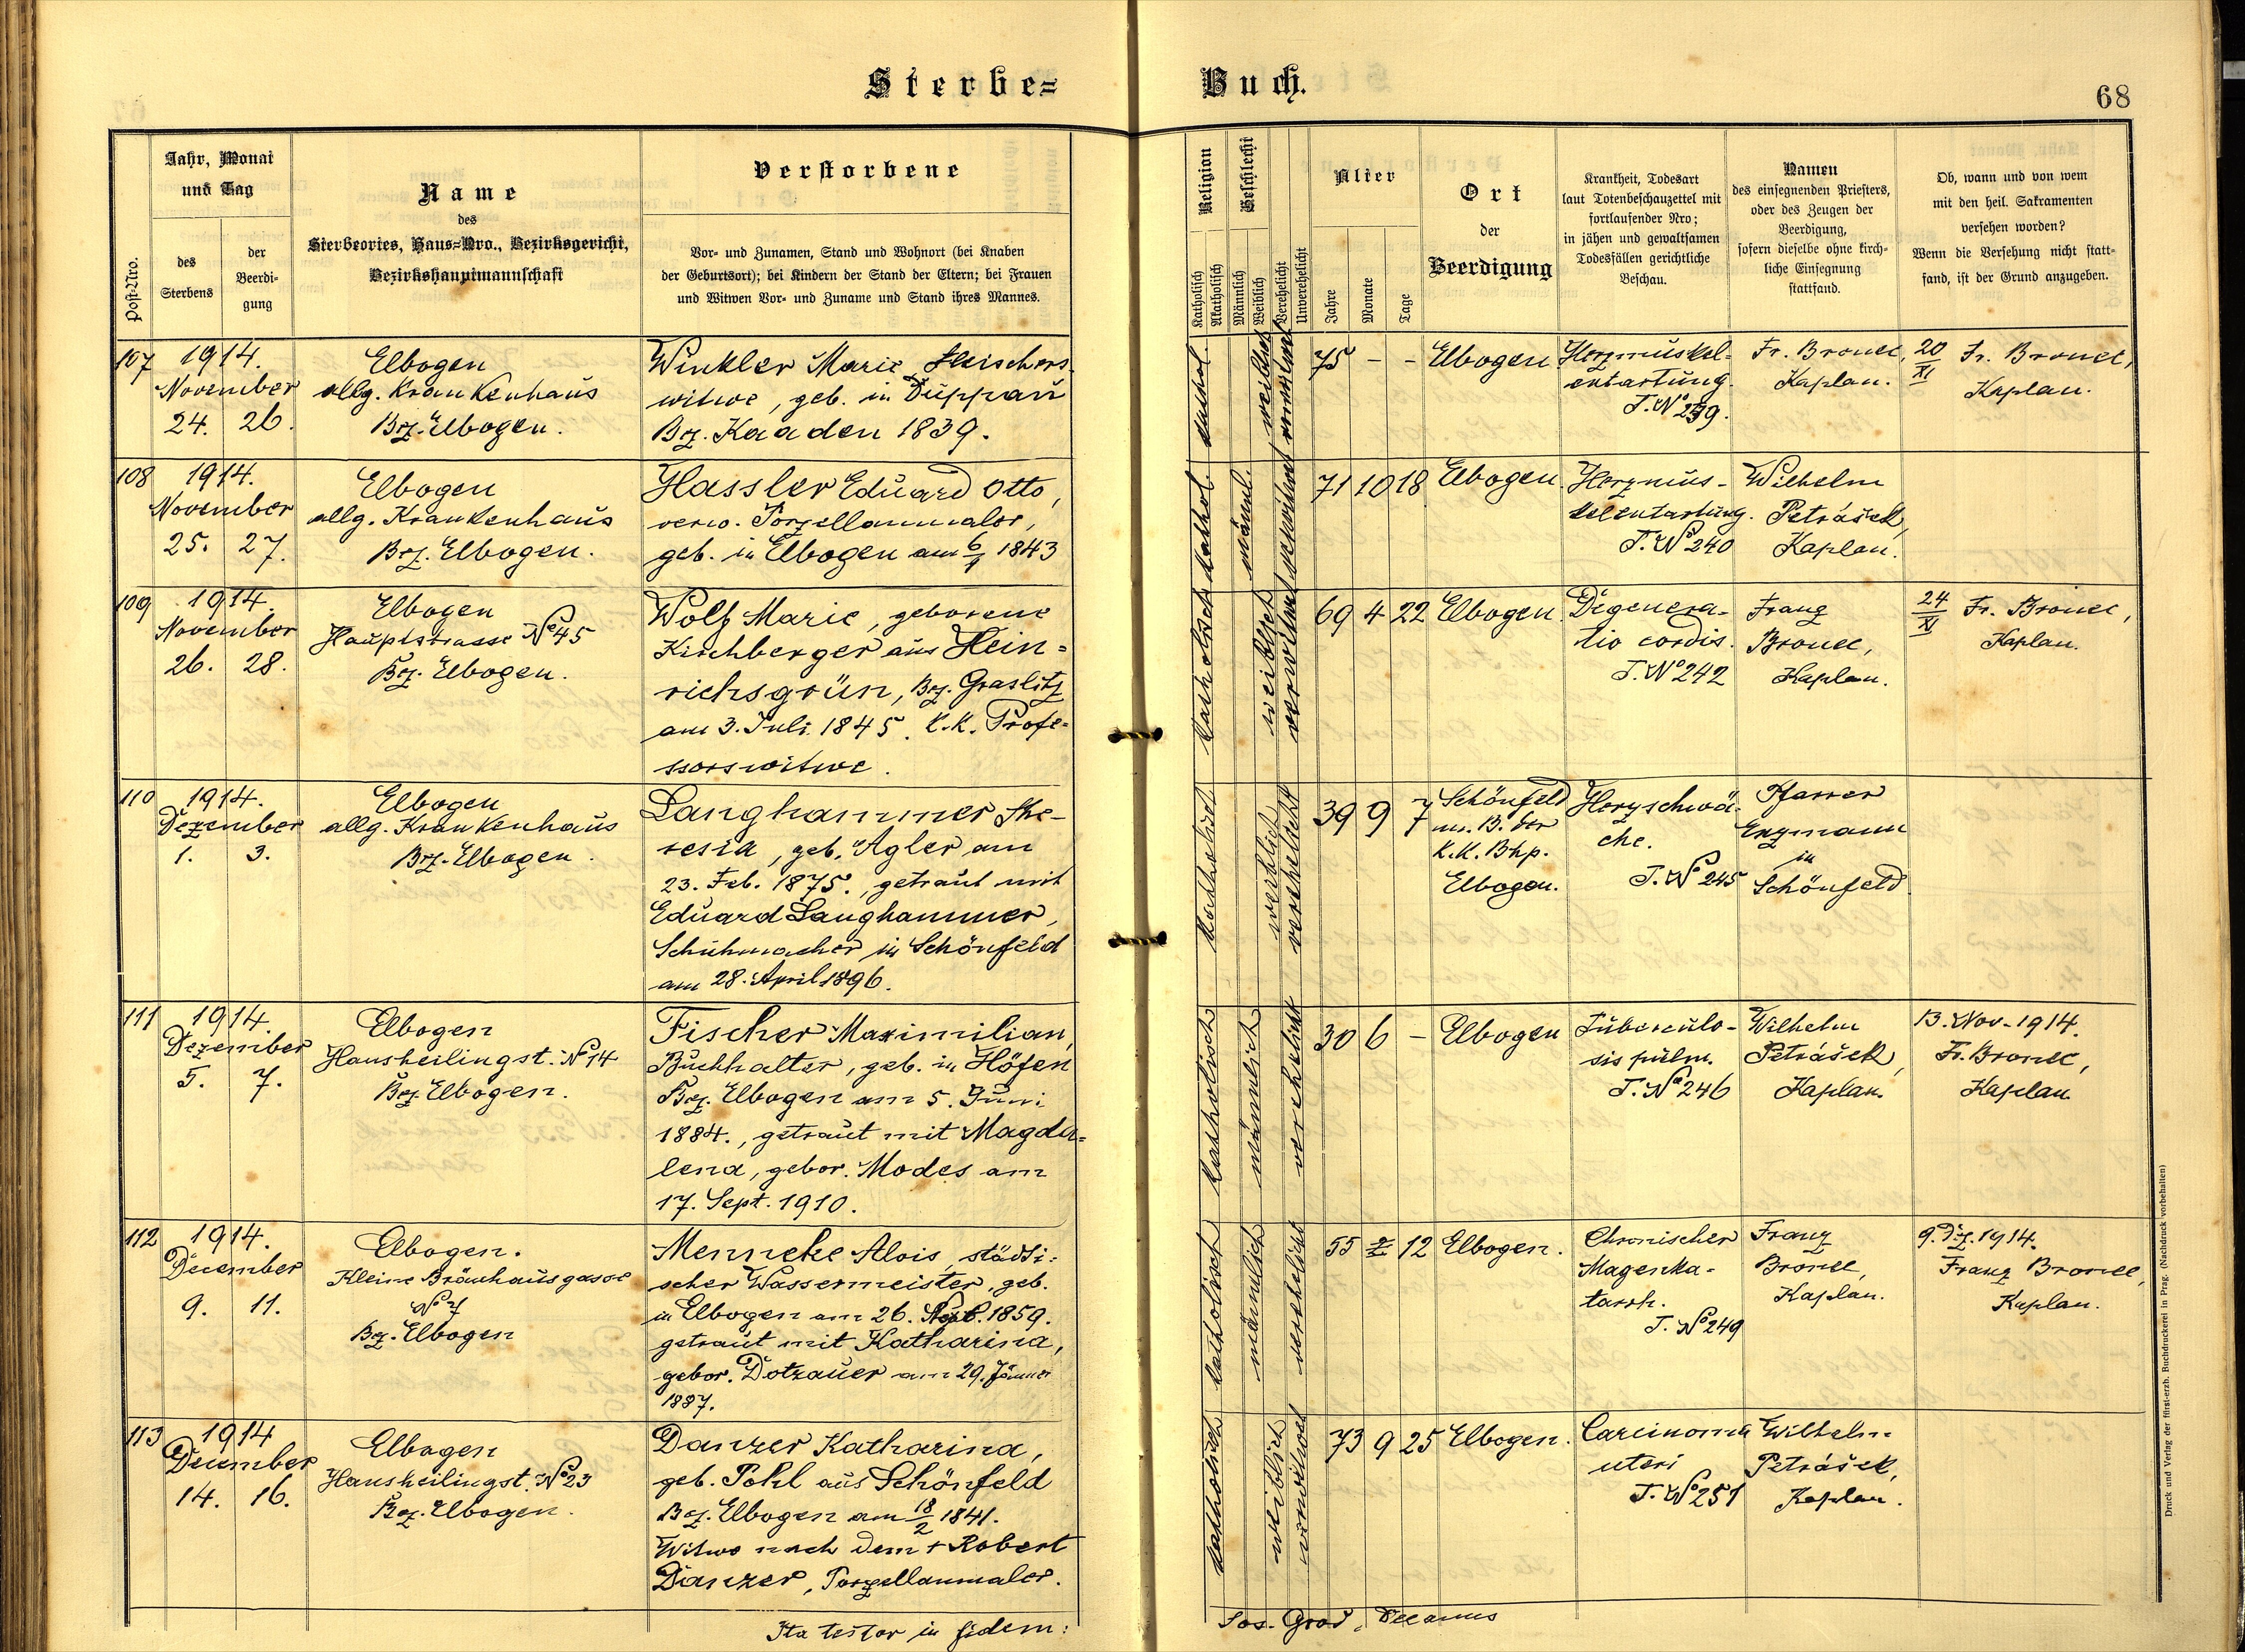 Sterbe=
Buch.
68
Post-Nro.
Jahr, Monat
und Tag
des
Sterbens
der
Beerdi-
gung
Name
des
Sterbeortes, Haus=Nro., Bezirksgericht,
Bezirkshauptmannschaft
Verstorbene
Vor- und Zunamen, Stand und Wohnort (bei Knaben
der Geburtsort); bei Kindern der Stand der Eltern; bei Frauen
und Witwen Vor- und Zuname und Stand ihres Mannes.
Religion
Katholisch
Akatholisch
Geschlecht
Männlich
Weiblich
Verehelicht
Unverehelicht
Alter
Jahre
Monate
Tage
Ort
der
Beerdigung
Krankheit, Todesart
laut Totenbeschauzettel mit
fortlaufender Nro;
in jähen und gewaltsamen
Todesfällen gerichtliche
Beschau.
Namen
des einsegnenden Priesters,
oder des Zeugen der
Beerdigung,
sofern dieselbe ohne kirch-
liche Einsegnung
stattfand.
Ob, wann und von wem
mit den heil. Sakramenten
versehen worden?
Wenn die Versehung nicht statt-
fand, ist der Grund anzugeben.
107
1914.
November
24. 26.
Elbogen
allg. Krankenhaus
Bez. Elbogen.
Winkler Marie, Fleischers-
witwe, geb. in Duppau
Bez. Kaaden 1839.
kathol.
weiblich
verwitwet
75 - -
Elbogen
Herzmuskel-
entartung.
T. No 239.
Fr. Bronec,
Kaplan.
20/XI Fr. Bronec,
Kaplan.
108
1914.
November
25. 27.
Elbogen
allg. Krankenhaus
Bez. Elbogen.
Hassler Eduard Otto,
verw. Porzellanmaler,
geb. in Elbogen am 6/1 1843
kathol.
männl.
verwitwet
71 10 18
Elbogen.
Herzmus-
kelentartung.
T. No 240
Wilhelm
Petrášek,
Kaplan.
109
1914.
November
26. 28.
Elbogen
Hauptstrasse No 45
Bez. Elbogen.
Wolf Marie, geborene
Kirchberger aus Hein=
richsgrün, Bez. Graslitz
am 3. Juli 1845. k.k. Profe=
ssorswitwe.
katholisch
weiblich
verwitwet
69 4 22
Elbogen.
Degenera-
tio cordis.
T. No 242
Franz
Bronec,
Kaplan.
24/XI Fr. Bronec,
Kaplan.
110
1914.
Dezember
1. 3.
Elbogen
allg. Krankenhaus
Bez. Elbogen.
Langhammer The-
resia, geb. Agler am
23. Feb. 1875., getraut mit
Eduard Langhammer,
Schuhmacher in Schönfeld
am 28. April 1896.
katholisch
weiblich
verehelicht
39 9 7
Schönfeld
im B. der
k.k. Bhp.
Elbogen.
Herzschwä-
che.
T. No 245
Pfarrer
Enzmann
in
Schönfeld
111
1914.
Dezember
5. 7.
Elbogen
Hansheilingst. No 14
Bez. Elbogen.
Fischer Maximilian,
Buchhalter, geb. in Höfen
Bez. Elbogen am 5. Juni
1884., getraut mit Magda=
lena, gebor. Modes am
17. Sept. 1910.
katholisch
männlich
verehelicht
30 6 -
Elbogen
Tuberculo-
sis pulm.
T. No 246
Wilhelm
Petrášek,
Kaplan.
13. Nov. 1914.
Fr. Bronec,
Kaplan.
112
1914.
December
9. 11.
Elbogen.
Kleine Bräuhausgasse
No 7
Bez. Elbogen
Menneke Alois, städti=
scher Wassermeister, geb.
in Elbogen am 26. Sept. 1859.
getraut mit Katharina,
gebor. Dotzauer am 29. Jänner
1887.
katholisch
männlich
verehelicht
55 2 12
Elbogen.
Chronischer
Magenka-
tarrh.
T. No 249
Franz
Bronec,
Kaplan.
9. Dez. 1914.
Franz Bronec,
Kaplan.
113
1914
December
14. 16.
Elbogen
Hansheilingst. No 23
Bez. Elbogen.
Danzer Katharina,
geb. Pohl aus Schönfeld
Bez. Elbogen am 18/2 1841.
Witwe nach dem + Robert
Danzer, Porzellanmaler.
katholisch
weiblich
verwitwet
73 9 25
Elbogen.
Carcinoma
uteri
T. No 251
Wilhelm
Petrášek,
Kaplan.
Ita testor in fidem:
Jos. Grod, Decanus
Druck und Verlag der fürst-erzb. Buchdruckerei in Prag. (Nachdruck vorbehalten)